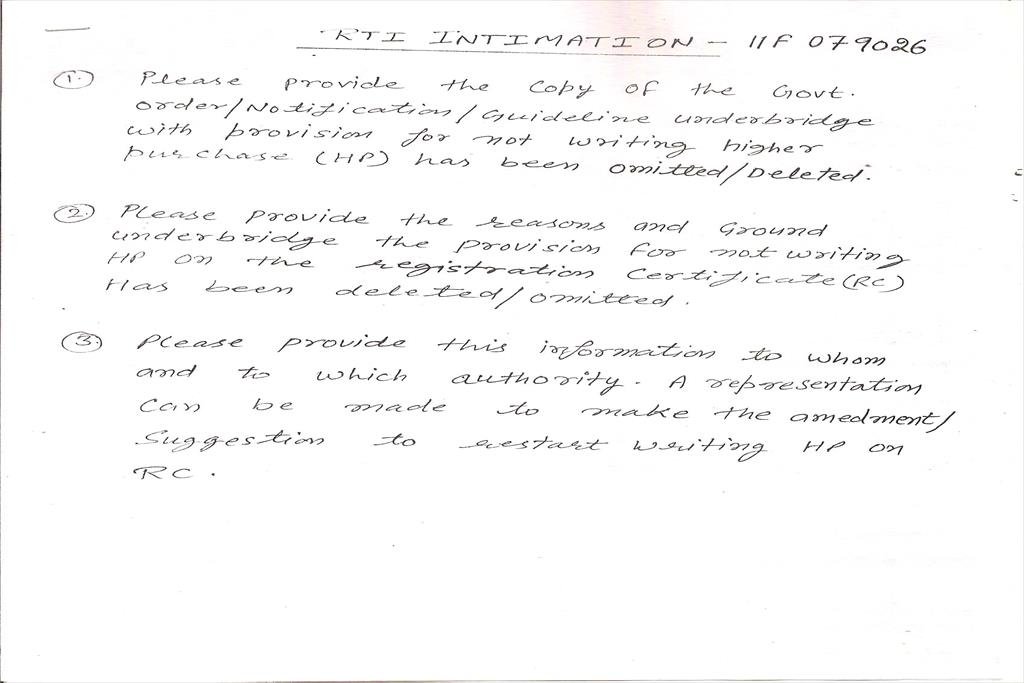 RTI INTIMATION - 11F 079026
1. Please provide the Copy of the Govt.
order/Notification/Guideline underbridge
with provision for not writing higher
purchase (HP) has been omitted/Deleted.
2. Please provide the reasons and Ground
underbridge the provision for not writing
HP on the registration Certificate (RC)
Has been deleted/omitted.
3. Please provide this information to whom
and to which authority. A representation
Can be made to make the amedment/
Suggestion to restart writing HP on
RC.